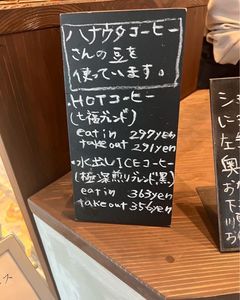 ハナウタコーヒー
さんの豆を
使っています。
・HOTコーヒー
(七福ブレンド)
eat in 297yen
take out 291yen
・水出しICEコーヒー
(極深煎りブレンド黒)
eat in 363yen
take out 356yen